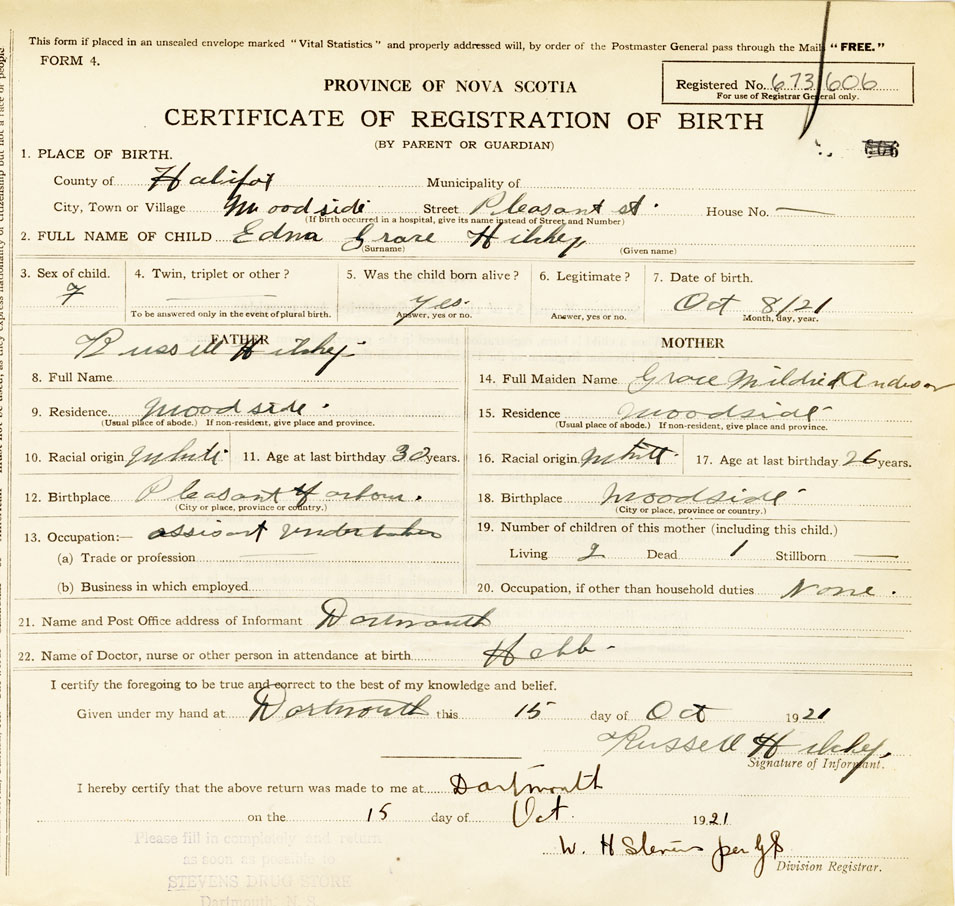 This form if placed in an unsealed envelope marked "Vital Statistics" and properly addressed will, by order of the Postmaster General pass through the Mails "FREE."
FORM 4.
PROVINCE OF NOVA SCOTIA
Registered No. 673606
For use of Registrar General only.
CERTIFICATE OF REGISTRATION OF BIRTH
(BY PARENT OR GUARDIAN)
1. PLACE OF BIRTH.
County of Halifax Municipality of
City, Town or Village Woodside Street Pleasant st. House No. —
(If birth occurred in a hospital, give its name instead of Street and Number)
2. FULL NAME OF CHILD Edna Grace Hilshey
(Surname) (Given name)
3. Sex of child. 4. Twin, triplet or other? 5. Was the child born alive? 6. Legitimate? 7. Date of birth.
F — Yes. Oct 8/21
To be answered only in the event of plural birth. Answer, yes or no. Answer, yes or no. Month, day, year.
FATHER MOTHER
Russell Hilshey
8. Full Name 14. Full Maiden Name Grace Mildred Anderson
9. Residence Woodside. 15. Residence Woodside
(Usual place of abode.) If non-resident, give place and province. (Usual place of abode.) If non-resident, give place and province.
10. Racial origin White 11. Age at last birthday 30 years. 16. Racial origin White 17. Age at last birthday 26 years.
12. Birthplace Pleasant Harbour. 18. Birthplace Woodside
(City or place, province or country.) (City or place, province or country.)
13. Occupation:— assisant Undertaker 19. Number of children of this mother (including this child.)
(a) Trade or profession — Living 2 Dead 1 Stillborn —
(b) Business in which employed 20. Occupation, if other than household duties None.
21. Name and Post Office address of Informant Dartmouth
22. Name of Doctor, nurse or other person in attendance at birth Hebb.
I certify the foregoing to be true and correct to the best of my knowledge and belief.
Given under my hand at Dartmouth this 15 day of Oct 1921
Russell Hilshey.
Signature of Informant.
I hereby certify that the above return was made to me at Dartmouth
on the 15 day of Oct. 1921
W. H Stevens per GS
Division Registrar.
Please fill in completely and return
as soon as possible to
STEVENS DRUG STORE
Dartmouth, N. S.